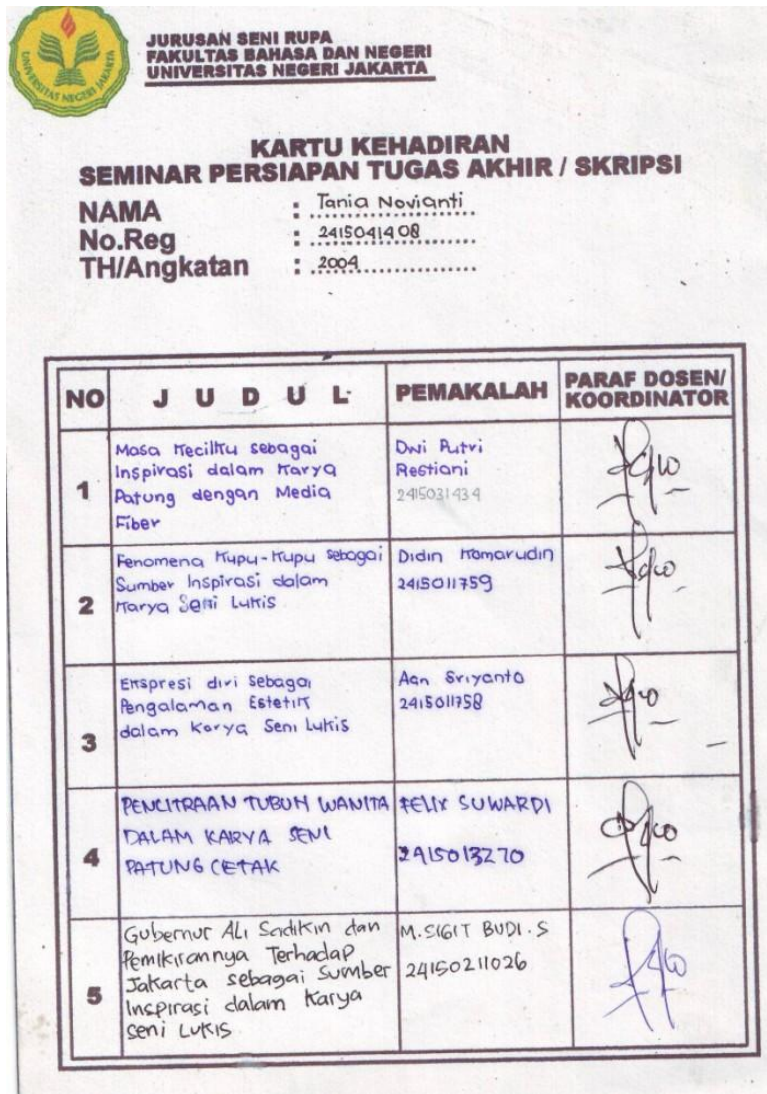 UNIVERSITAS NEGERI JAKARTA
JURUSAN SENI RUPA
FAKULTAS BAHASA DAN NEGERI
UNIVERSITAS NEGERI JAKARTA
KARTU KEHADIRAN
SEMINAR PERSIAPAN TUGAS AKHIR / SKRIPSI
NAMA : Tania Novianti
No.Reg : 2415041408
TH/Angkatan : 2004
NO J U D U L PEMAKALAH PARAF DOSEN/
KOORDINATOR
1
Masa Kecilku sebagai
Inspirasi dalam Karya
Patung dengan Media
Fiber
Dwi Putri
Restiani
2415031434
2
Fenomena Kupu-Kupu sebagai
Sumber Inspirasi dalam
Karya Seni Lukis
Didin Komarudin
2415011759
3
Ekspresi diri sebagai
Pengalaman Estetik
dalam Karya Seni Lukis
Aan Sriyanto
2415011758
4
PENCITRAAN TUBUH WANITA
DALAM KARYA SENI
PATUNG CETAK
FELIX SUWARDI
2415013270
5
Gubernur Ali Sadikin dan
Pemikirannya Terhadap
Jakarta sebagai Sumber
Inspirasi dalam Karya
seni Lukis
M. SIGIT BUDI. S
24150211026